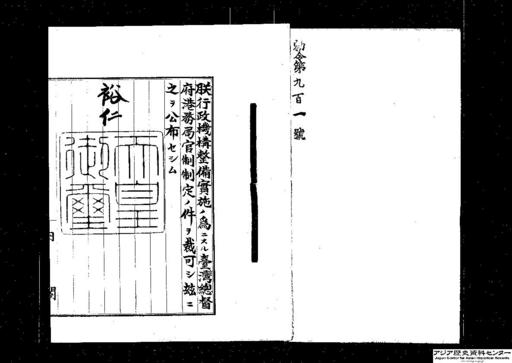 勅令第九百一號
朕行政機構整備實施ノ爲ニスル臺灣總督
府港務局官制制定ノ件ヲ裁可シ玆ニ
之ヲ公布セシム
裕仁
天皇
御璽
内閣
アジア歴史資料センター
Japan Center for Asian Historical Records